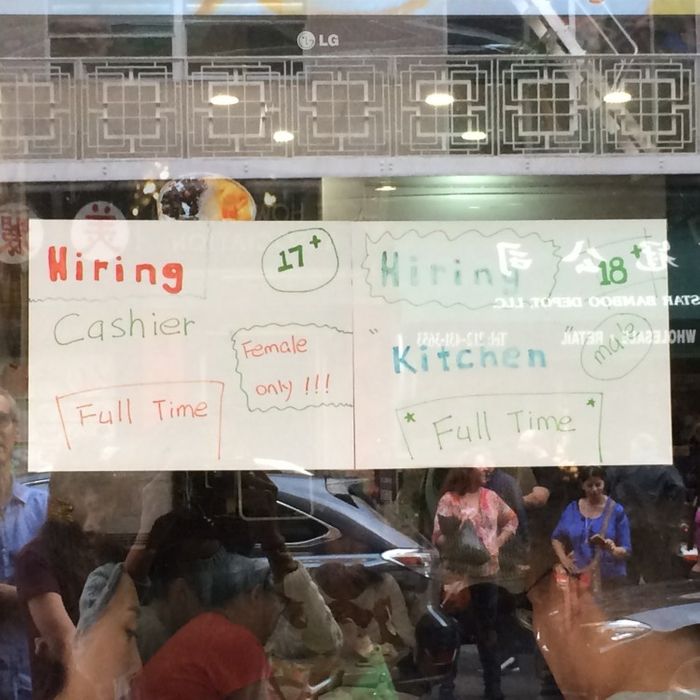 LG
Hiring
17+
Cashier
Female
only !!!
Full Time
Hiring
18+
"male"
Kitchen
* Full Time *
司 公
STAR BAMBOO DEPOT, LLC.
WHOLESALE • RETAIL
美